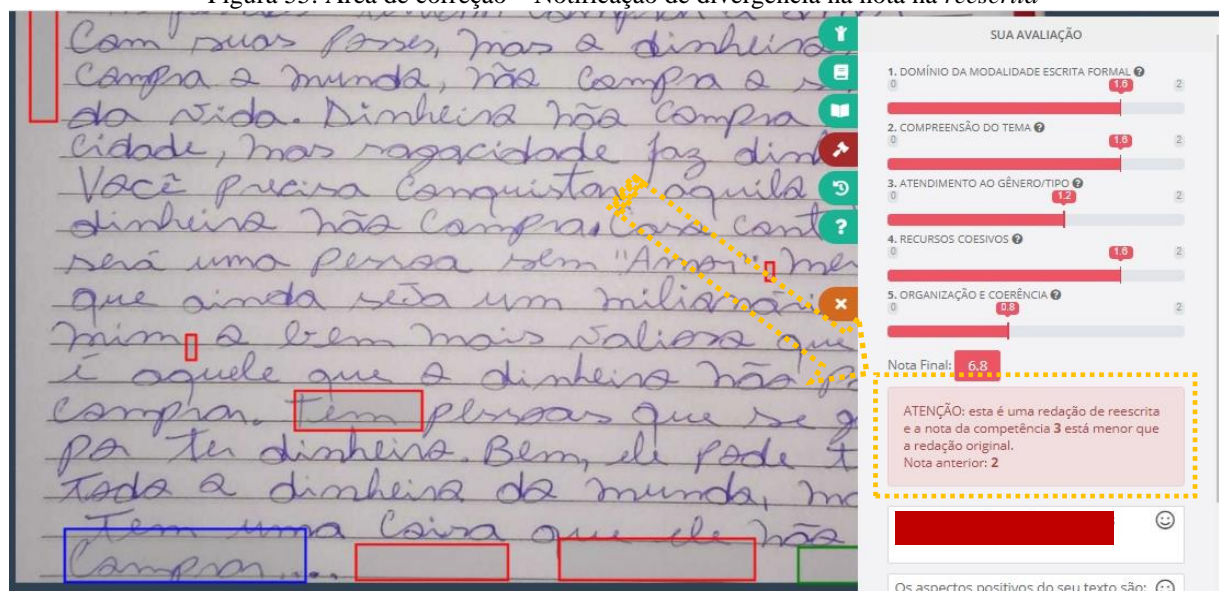 Figura 35: Área de correção – Notificação de divergência na nota na reescrita
Com suas posses, mas o dinheiro
compra o mundo, não compra o
da vida. Dinheiro não compra
cidade, mas sagacidade faz dinh
Você precisa conquistar aquilo
dinheiro não compra. Caso cont
será uma pessoa sem "Amor", mes
que ainda seja um milionári
mim, o bem mais valioso que
é aquele que o dinheiro não p
comprar. Tem pessoas que se g
por ter dinheiro. Bem, ele pode t
Todo o dinheiro do mundo, ma
Tem uma coisa que ele não
comprar...
SUA AVALIAÇÃO
1. DOMÍNIO DA MODALIDADE ESCRITA FORMAL
0 1.6 2
2. COMPREENSÃO DO TEMA
0 1.6 2
3. ATENDIMENTO AO GÊNERO/TIPO
0 1.2 2
4. RECURSOS COESIVOS
0 1.6 2
5. ORGANIZAÇÃO E COERÊNCIA
0 0.8 2
Nota Final: 6.8
ATENÇÃO: esta é uma redação de reescrita
e a nota da competência 3 está menor que
a redação original.
Nota anterior: 2
Os aspectos positivos do seu texto são: